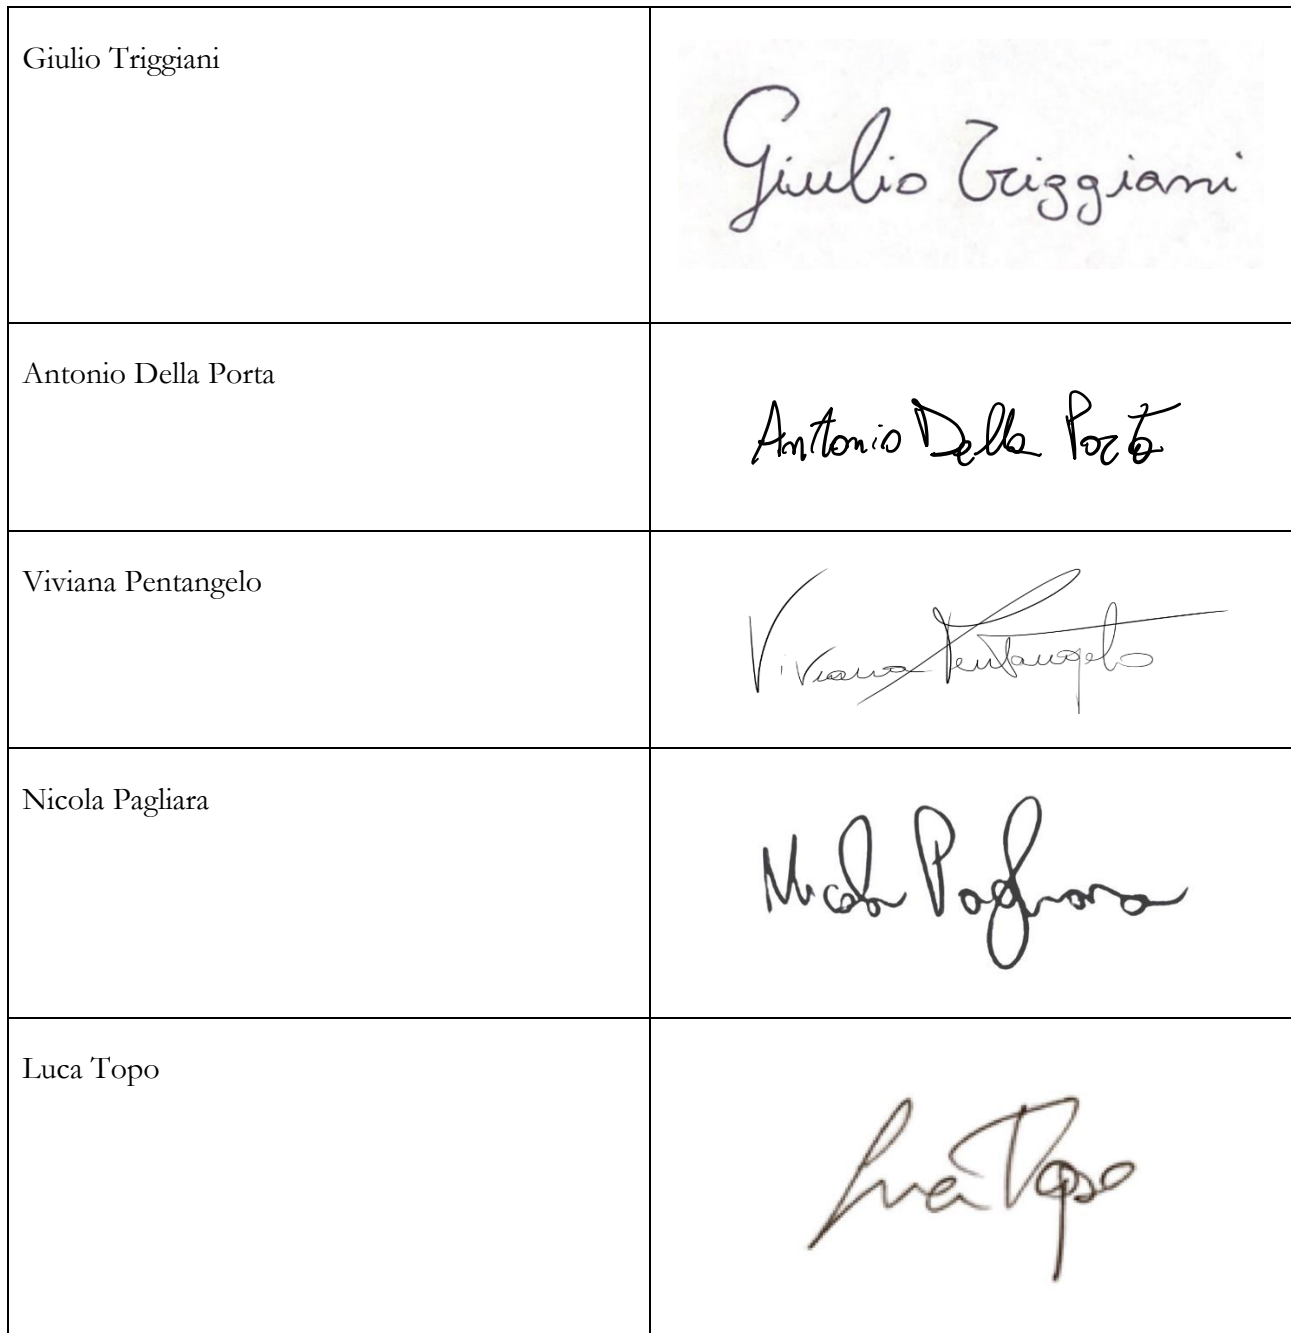 Giulio Triggiani
Giulio Triggiani
Antonio Della Porta
Antonio Della Porta
Viviana Pentangelo
Viviana Pentangelo
Nicola Pagliara
Nicola Pagliara
Luca Topo
Luca Topo